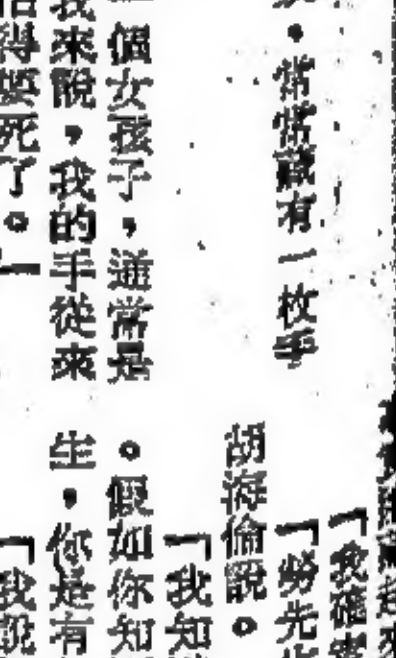 ，常常藏有一枚手
個女孩子，通常是
我來說，我的手從來
得要死了。」
「我確
「勞先
胡海倫說。
「我知
。假如你知
生，你是有
「我說